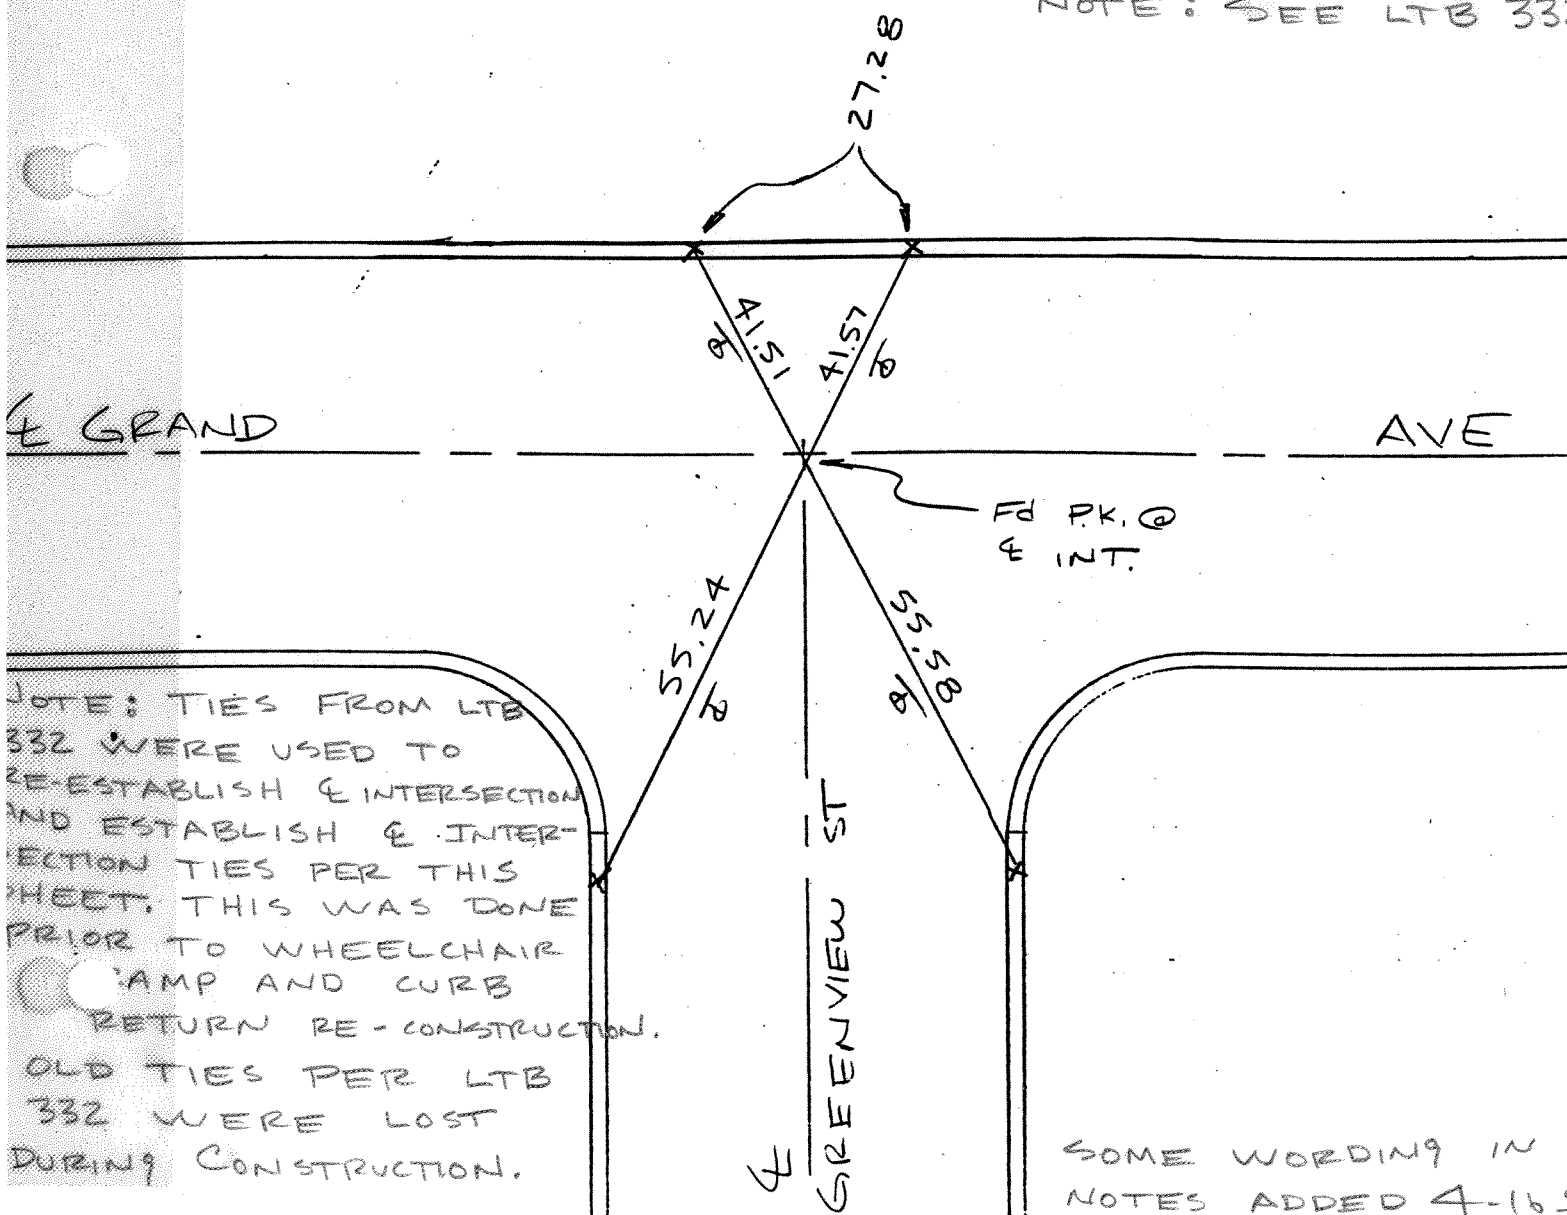 NOTE: SEE LTB 332
27.28
41.51
41.57
℄ GRAND AVE
Fd P.K. @
℄ INT.
55.24
55.58
NOTE: TIES FROM LTB
332 WERE USED TO
RE-ESTABLISH ℄ INTERSECTION
AND ESTABLISH ℄ INTER-
SECTION TIES PER THIS
SHEET. THIS WAS DONE
PRIOR TO WHEELCHAIR
RAMP AND CURB
RETURN RE-CONSTRUCTION.
OLD TIES PER LTB
332 WERE LOST
DURING CONSTRUCTION.
℄ GREENVIEW ST
SOME WORDING IN
NOTES ADDED 4-16